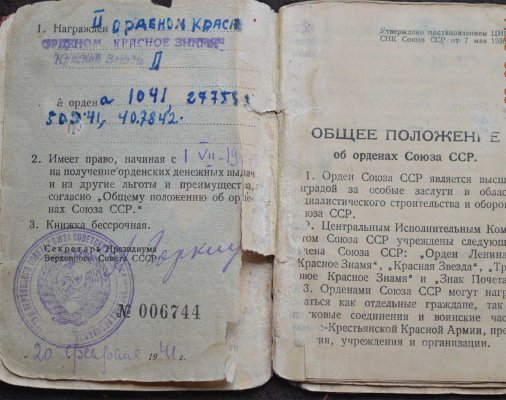 1. Награжден II ОРДЕНОМ КРАСН
ОРДЕНОМ „КРАСНОЕ ЗНАМЯ“
Красной Звезды II
№ ордена 1041, 27758
50541, 407842.
2. Имеет право, начиная с 1 VII-19
на получение орденских денежных выдач
и на другие льготы и преимущества,
согласно „Общему положению об орде-
нах Союза ССР.“
3. Книжка бессрочная.
Секретарь Президиума
Верховного Совета СССР
№ 006744
20 февраля 1941 г.
Утверждено постановлением ЦИ
СНК Союза ССР от 7 мая 193
ОБЩЕЕ ПОЛОЖЕНИЕ
об орденах Союза ССР.
1. Орден Союза ССР является высш
наградой за особые заслуги в облас
циалистического строительства и оборо
Союза ССР.
2. Центральным Исполнительным Ком
том Союза ССР учреждены следующ
дена Союза ССР: „Орден Ленина
Красное Знамя“, „Красная Звезда“, „Тр
вое Красное Знамя“ и „Знак Почета
3. Орденами Союза ССР могут награ
аться как отдельные граждане, так
нсковые соединения и воинские час
че-Крестьянской Красной Армии, пре
тия, учреждения и организации.